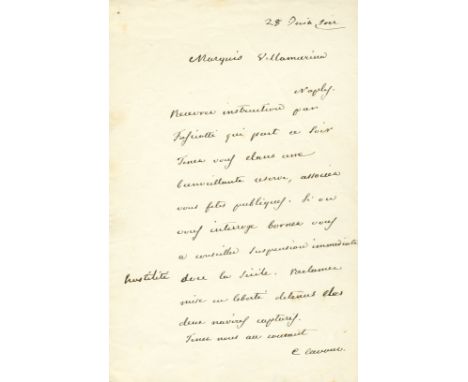 28 Juin soir
Marquis Villamarina
Naples.
Recevrez instruction par
Fasciotti qui part ce soir
Tenez vous dans une
bienveillante reserve, associez
vous fetes publiques. Si on
vous interroge bornez vous
a conseiller suspension immediate
hostilité avec la Sicile. Reclamez
mise en liberté detenus des
deux navires capturés.
Tenez nous au courant
C Cavour.